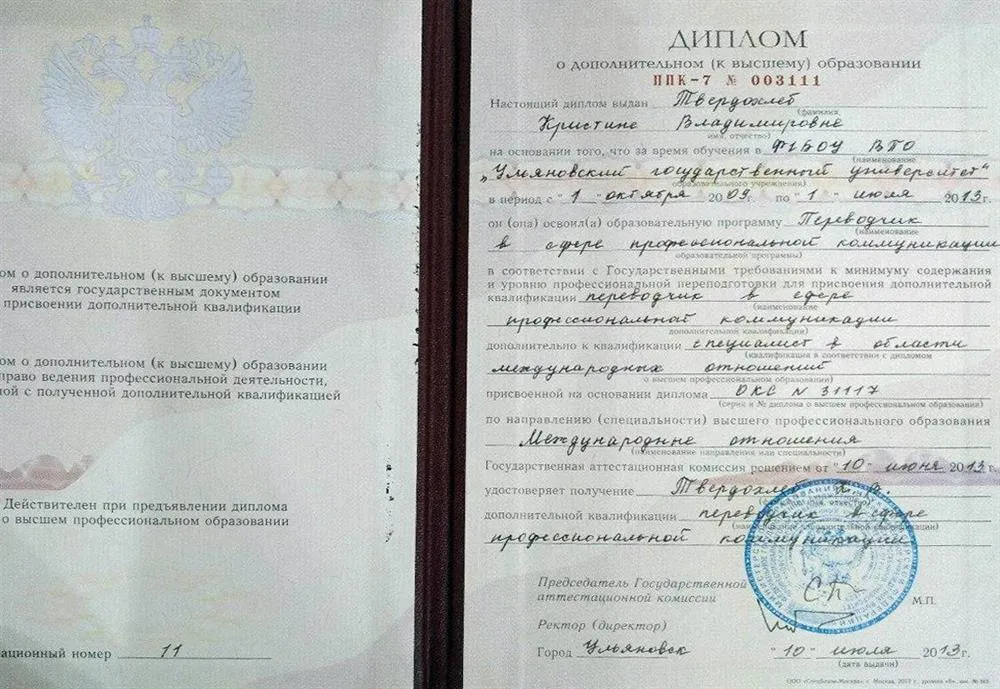 ом о дополнительном (к высшему) образовании
является государственным документом
присвоении дополнительной квалификации
ом о дополнительном (к высшему) образовании
право ведения профессиональной деятельности,
ной с полученной дополнительной квалификацией
Действителен при предъявлении диплома
о высшем профессиональном образовании
ационный номер 11
ДИПЛОМ
о дополнительном (к высшему) образовании
ППК-7 № 003111
Настоящий диплом выдан Твердохлеб
(фамилия,
Кристине Владимировне
имя, отчество)
на основании того, что за время обучения в ФГБОУ ВПО
(наименование
„Ульяновский государственный университет"
образовательного учреждения)
в период с "1" октября 2009г. по "1" июля 2013г.
он (она) освоил(а) образовательную программу Переводчик
(наименование
в сфере профессиональной коммуникации
образовательной программы)
в соответствии с Государственными требованиями к минимуму содержания
и уровню профессиональной переподготовки для присвоения дополнительной
квалификации переводчик в сфере
(наименование
профессиональной коммуникации
дополнительной квалификации)
дополнительно к квалификации специалист в области
(квалификация в соответствии с дипломом
международных отношений
о высшем профессиональном образовании)
присвоенной на основании диплома ОКС N 31117
(серия и № диплома о высшем профессиональном образовании)
по направлению (специальности) высшего профессионального образования
Международные отношения
(наименование направления или специальности)
Государственная аттестационная комиссия решением от "10" июня 2013г.
удостоверяет получение Твердохлеб К.В.
дополнительной квалификации переводчик в сфере
профессиональной коммуникации
Председатель Государственной
аттестационной комиссии
М.П.
Ректор (директор)
Город Ульяновск "10" июля 2013г.
(дата выдачи)